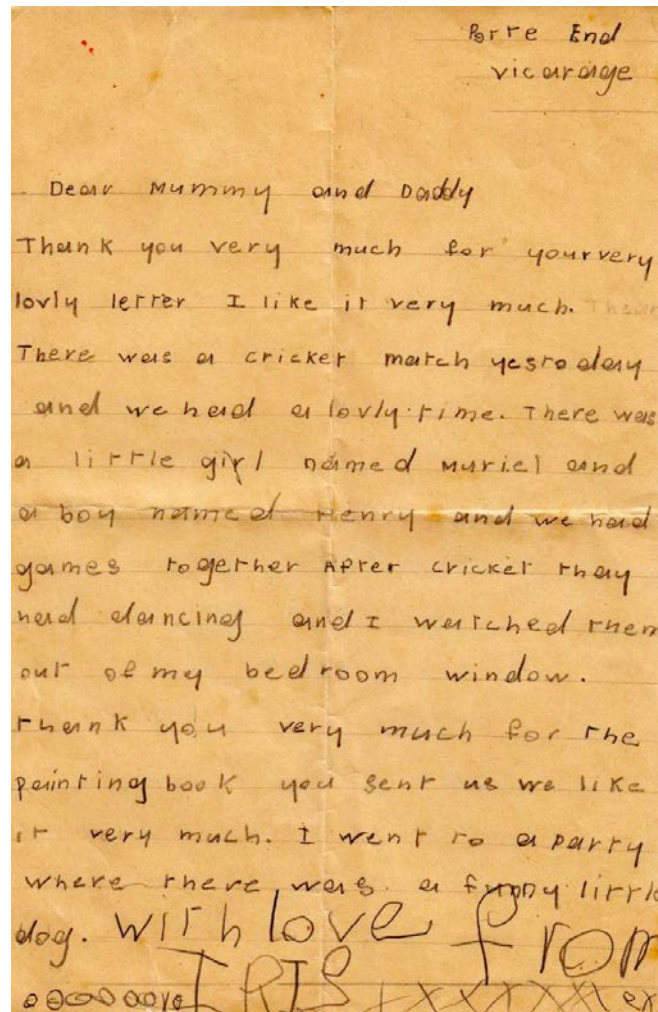 Porte End
vicarage
Dear Mummy and Daddy
Thank you very much for yourvery
lovly letter I like it very much.
There was a cricket match yestoday
and we had a lovly time. There was
a little girl named Muriel and
a boy named Henry and we had
games together After cricket thay
had dancing and I watched them
out of my bedroom window.
thank you very much for the
painting book you sent us we like
it very much. I went to a party
where there was a funny little
dog. with love from
IRIS xxxxxx